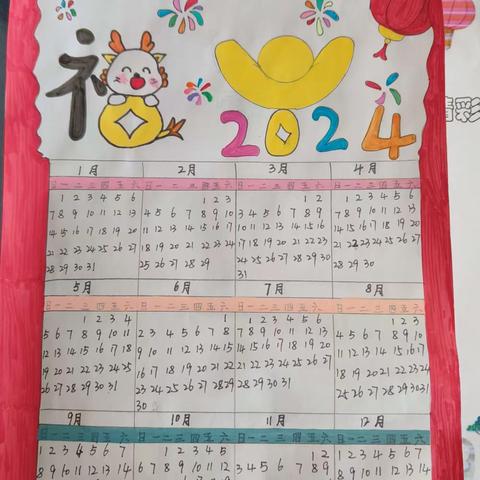 福
2024
精彩
1月 2月 3月 4月
日一二三四五六 日一二三四五六 日一二三四五六 日一二三四五六
1 2 3 4 5 6 1 2 3 1 2 1 2 3 4 5 6
7 8 9 10 11 12 13 4 5 6 7 8 9 10 3 4 5 6 7 8 9 7 8 9 10 11 12 13
14 15 16 17 18 19 20 11 12 13 14 15 16 17 10 11 12 13 14 15 16 14 15 16 17 18 19 20
21 22 23 24 25 26 27 18 19 20 21 22 23 24 17 18 19 20 21 22 23 21 22 23 24 25 26 27
28 29 30 31 25 26 27 28 29 24 25 26 27 28 29 30 28 29 30
31
5月 6月 7月 8月
日一二三四五六 日一二三四五六 日一二三四五六 日一二三四五六
1 2 3 4 1 1 2 3 4 5 6 1 2 3
5 6 7 8 9 10 11 2 3 4 5 6 7 8 7 8 9 10 11 12 13 4 5 6 7 8 9 10
12 13 14 15 16 17 18 9 10 11 12 13 14 15 14 15 16 17 18 19 20 11 12 13 14 15 16 17
19 20 21 22 23 24 25 16 17 18 19 20 21 22 21 22 23 24 25 26 27 18 19 20 21 22 23 24
26 27 28 29 30 31 23 24 25 26 27 28 29 28 29 30 31 25 26 27 28 29 30 31
30
9月 10月 11月 12月
日一二三四五六 日一二三四五六 日一二三四五六 日一二三四五六
1 2 3 4 5 6 7 1 2 3 4 5 1 2 1 2 3 4 5 6 7
8 9 10 11 12 13 14 6 7 8 9 10 11 12 3 4 5 6 7 8 9 8 9 10 11 12 13 14